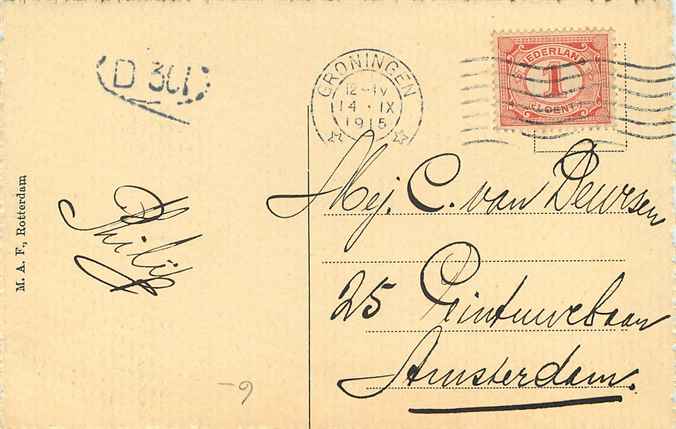 D 361
GRONINGEN
12-IV
14 · IX
1915
NEDERLAND
1
CENT
M. A. F., Rotterdam
Philip
Mej. C. van Deursen
25 Ceintuurbaan
Amsterdam.
-9